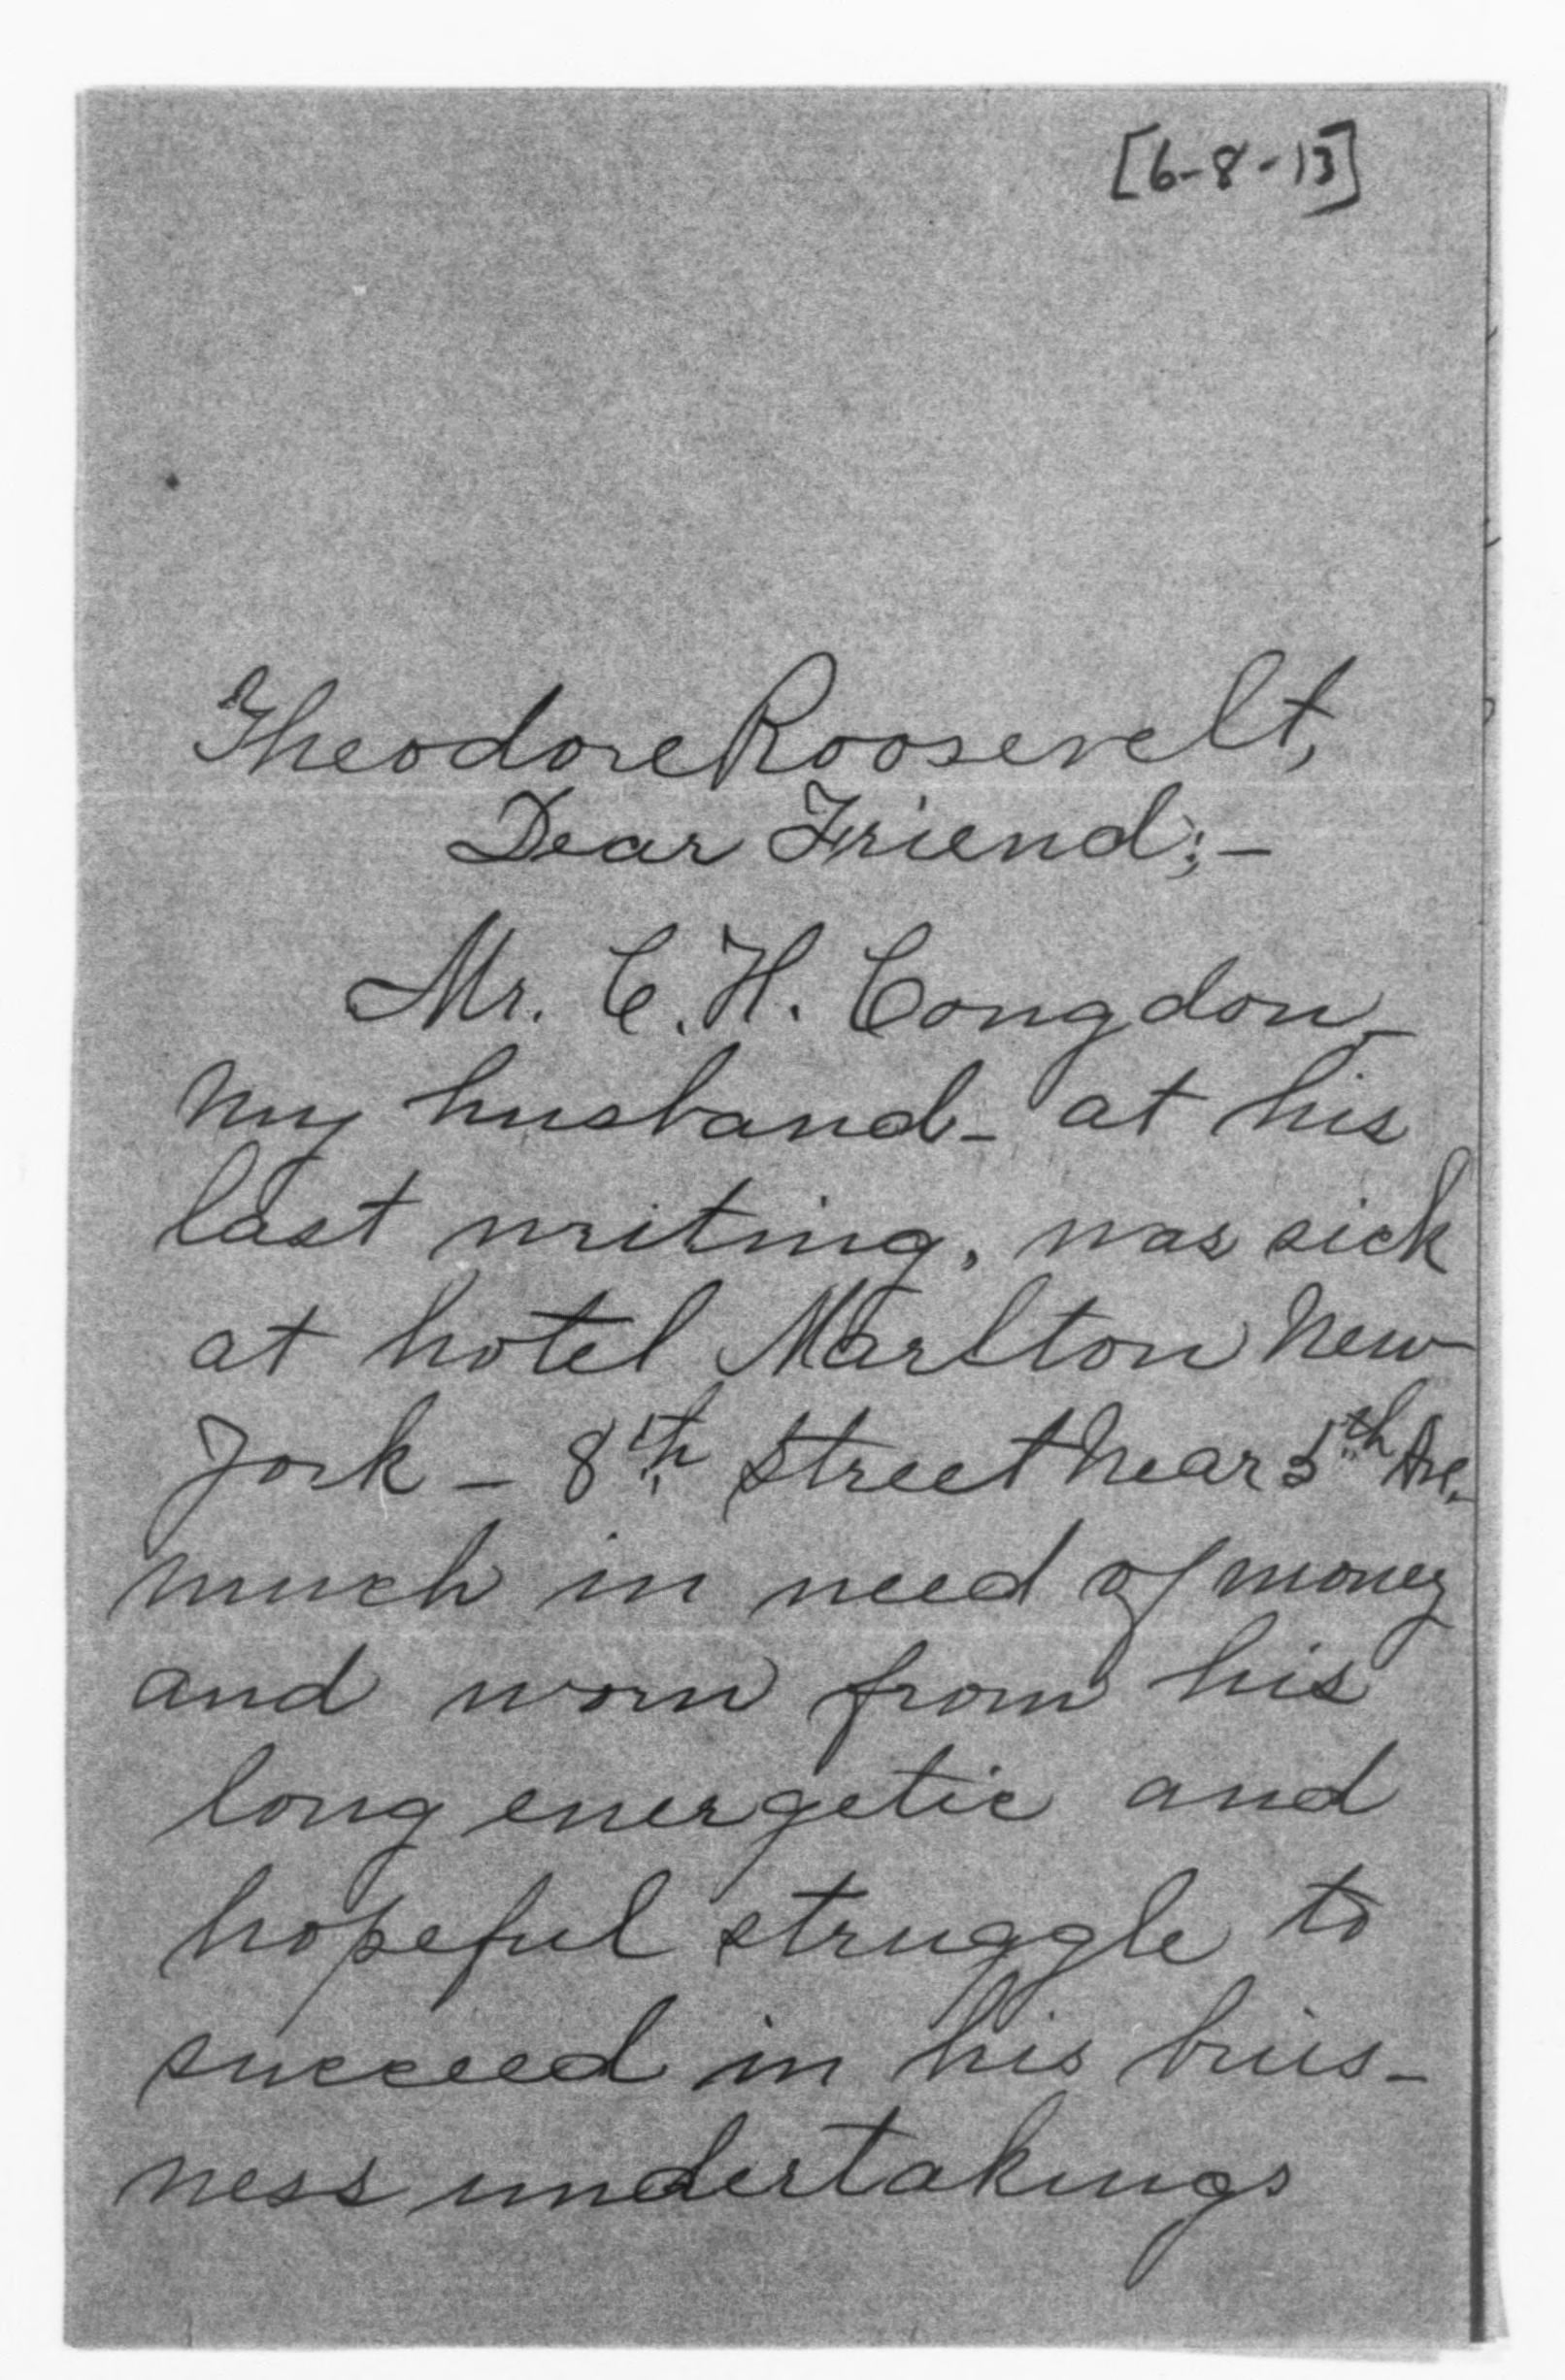 [6-8-13]
Theodore Roosevelt,
Dear Friend;-
Mr. C. H. Congdon -
my husband - at his
last writing, was sick
at hotel Marlton New
York - 8th Street near 5th Ave.
much in need of money
and worn from his
long energetic and
hopeful struggle to
succeed in his busi-
ness undertakings